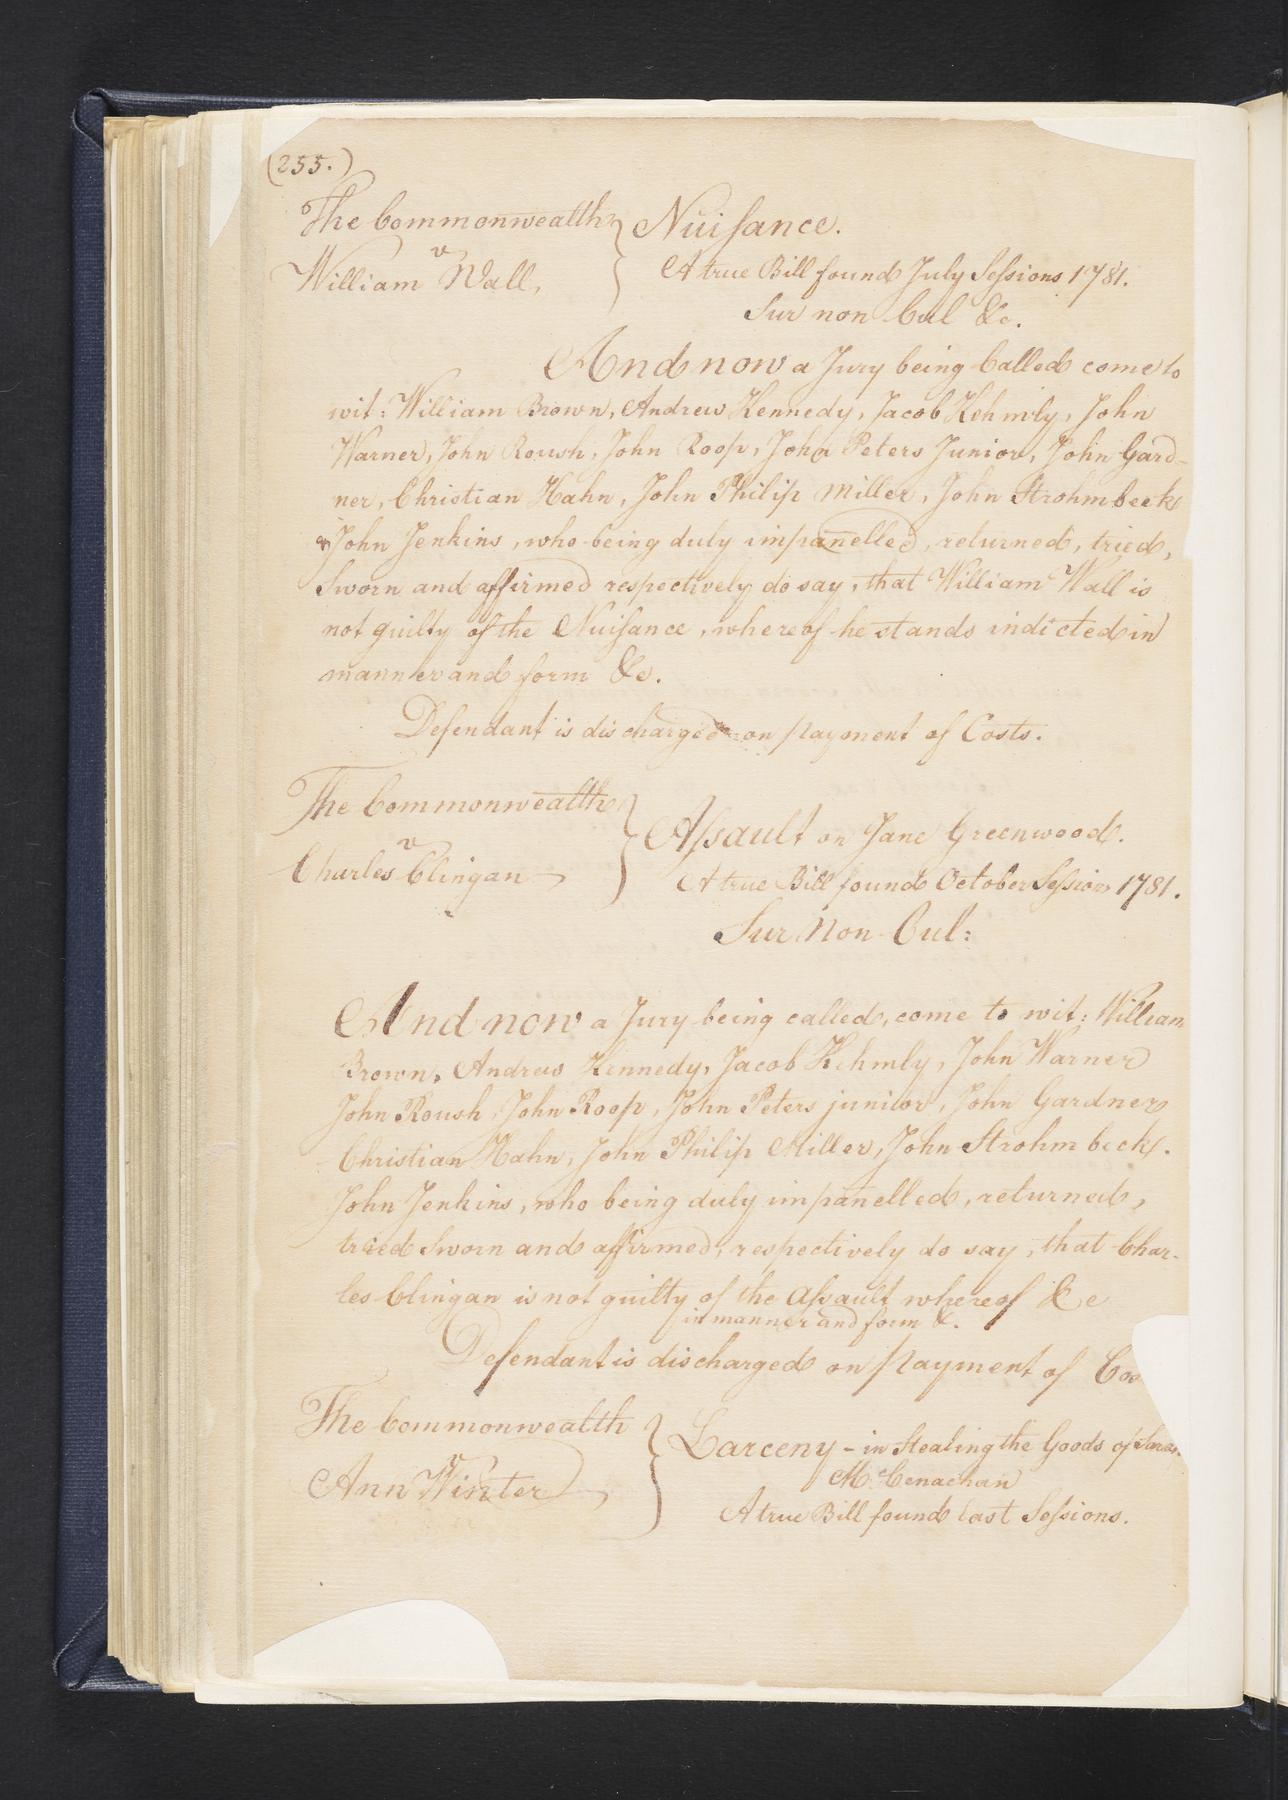 (255.)
The Commonwealth } Nuisance.
v
William Wall, A true Bill found July Sessions 1781.
Sur non Cul &c.
And now a Jury being Called come to
wit: William Brown, Andrew Kennedy, Jacob Kehmly, John
Warner, John Roush, John Roop, John Peters Junior, John Gard-
ner, Christian Hahn, John Philip Miller, John Strohmbeck
& John Jenkins, who being duly impanelled, returned, tried,
Sworn and affirmed respectively do say, that William Wall is
not guilty of the Nuisance, whereof he stands indicted in
manner and form &c.
Defendant is discharged on payment of Costs.
The Commonwealth } Assault on Jane Greenwood.
v
Charles Clingan A true Bill found October Session 1781.
Sur Non Cul:
And now a Jury being called, come to wit: William
Brown, Andrew Kennedy, Jacob Kehmly, John Warner
John Roush, John Roop, John Peters junior, John Gardner
Christian Hahn, John Philip Miller, John Strohmbeck.
John Jenkins, who being duly impanelled, returned,
tried Sworn and affirmed, respectively do say, that Char-
les Clingan is not guilty of the Assault whereof &c
in manner and form &.
Defendant is discharged on Payment of
The Commonwealth } Larceny - in Stealing the Goods of
v McCenachan
Ann Winter, A true Bill found last Sessions.